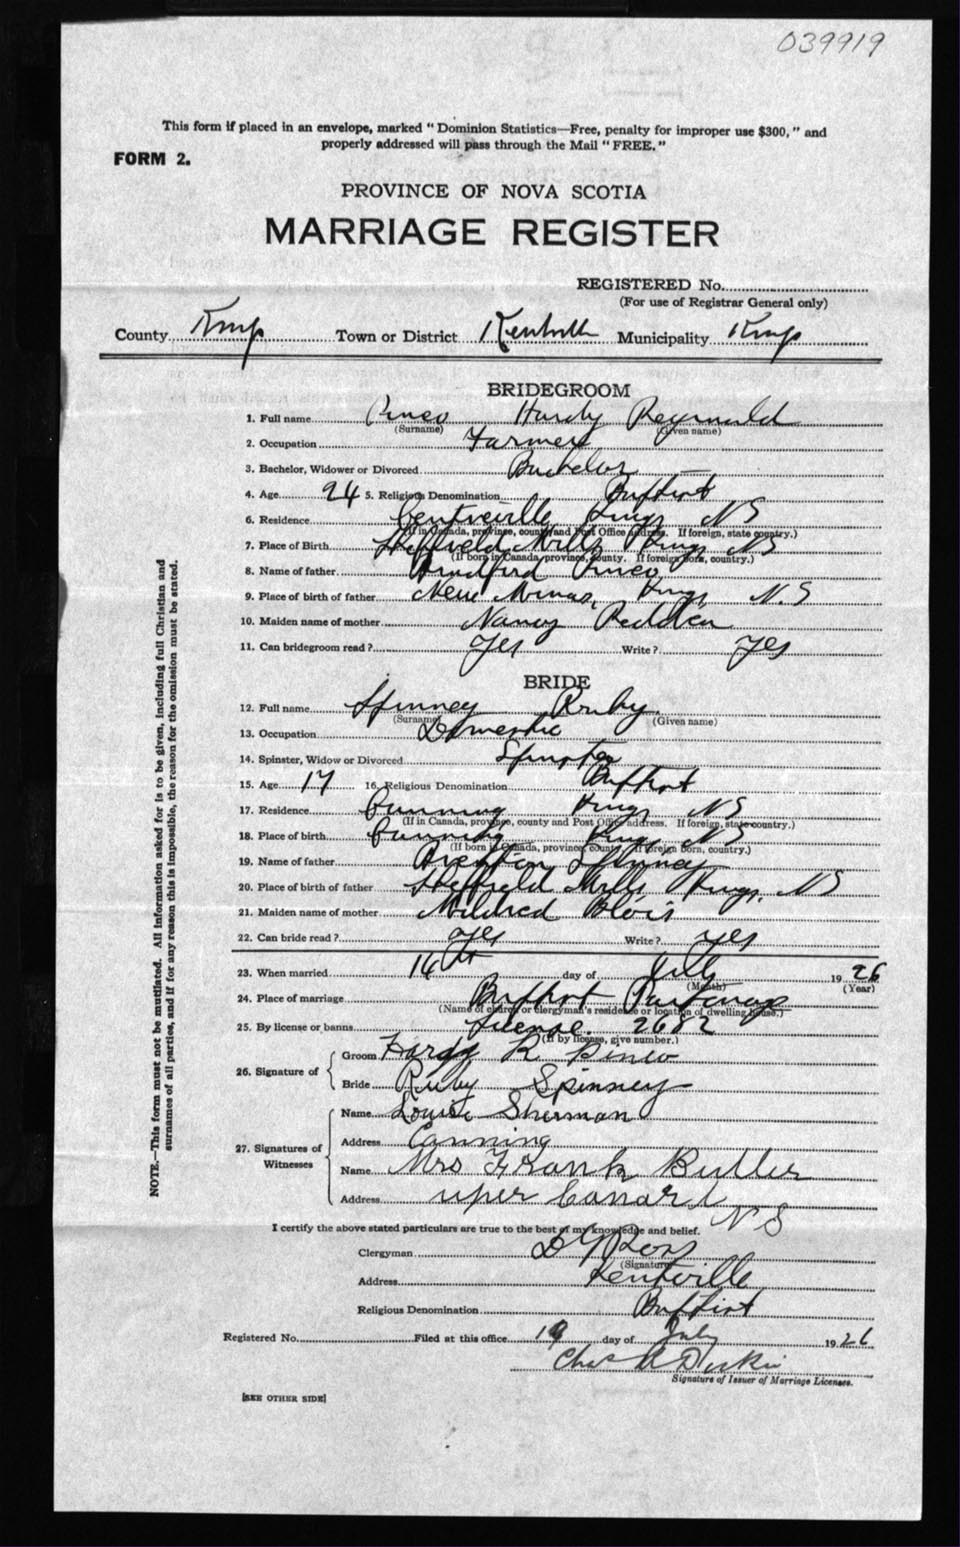 039919
This form if placed in an envelope, marked "Dominion Statistics—Free, penalty for improper use $300," and
properly addressed will pass through the Mail "FREE."
FORM 2.
PROVINCE OF NOVA SCOTIA
MARRIAGE REGISTER
REGISTERED No.
(For use of Registrar General only)
County Kings Town or District Kentville Municipality Kings
BRIDEGROOM
1. Full name Pineo Hardy Reginald
(Surname) (Given name)
2. Occupation Farmer
3. Bachelor, Widower or Divorced Bachelor
4. Age 24 5. Religious Denomination Baptist
6. Residence Centreville Kings NS
(If in Canada, province, county and Post Office address. If foreign, state country.)
7. Place of Birth Sheffield Mills Kings NS
(If born in Canada, province, county. If foreign born, country.)
8. Name of father Bradford Pineo
9. Place of birth of father New Minas, Kings, N.S
10. Maiden name of mother Nancy Redden
11. Can bridegroom read? Yes Write? Yes
BRIDE
12. Full name Spinney Ruby
(Surname) (Given name)
13. Occupation Domestic
14. Spinster, Widow or Divorced Spinster
15. Age 17 16. Religious Denomination Baptist
17. Residence Canning Kings NS
(If in Canada, province, county and Post Office address. If foreign, state country.)
18. Place of birth Canning Kings NS
(If born in Canada, province, county. If foreign born, country.)
19. Name of father Brenton Spinney
20. Place of birth of father Sheffield Mills Kings, NS
21. Maiden name of mother Mildred Blois
22. Can bride read? Yes Write? Yes
23. When married 14th day of July 1926
(Month) (Year)
24. Place of marriage Baptist Parsonage
(Name of church or clergyman's residence or location of dwelling house.)
25. By license or banns License. 2682
(If by license, give number.)
26. Signature of
Groom Hardy R Pineo
Bride Ruby Spinney
27. Signatures of Witnesses
Name Louise Sherman
Address Canning
Name Mrs Frank Butler
Address uper Canard
N S
I certify the above stated particulars are true to the best of my knowledge and belief.
Clergyman
(Signature)
Address Kentville
Religious Denomination Baptist
Registered No. Filed at this office 19 day of July 1926
Signature of Issuer of Marriage Licenses.
[SEE OTHER SIDE]
NOTE.—This form must not be mutilated. All information asked for is to be given, including full Christian and
surnames of all parties, and if for any reason this is impossible, the reason for the omission must be stated.